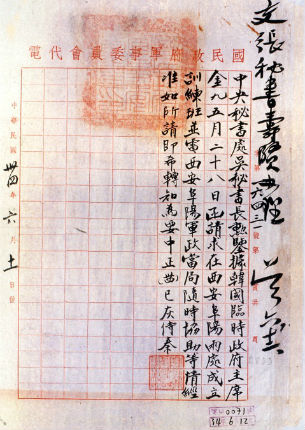 國民政府軍事委員會代電
交張秘書壽賢辦理
中央秘書處吳秘書長勳鑒據韓國臨時政府主席
金九五月二十八日函請求在西安阜陽兩處成立
訓練班並電西安阜陽軍政當局隨時協助等情經
准如所請即希轉知為要中正 已灰侍秦
中華民國卅四年六月十一日
0071
34.6.12